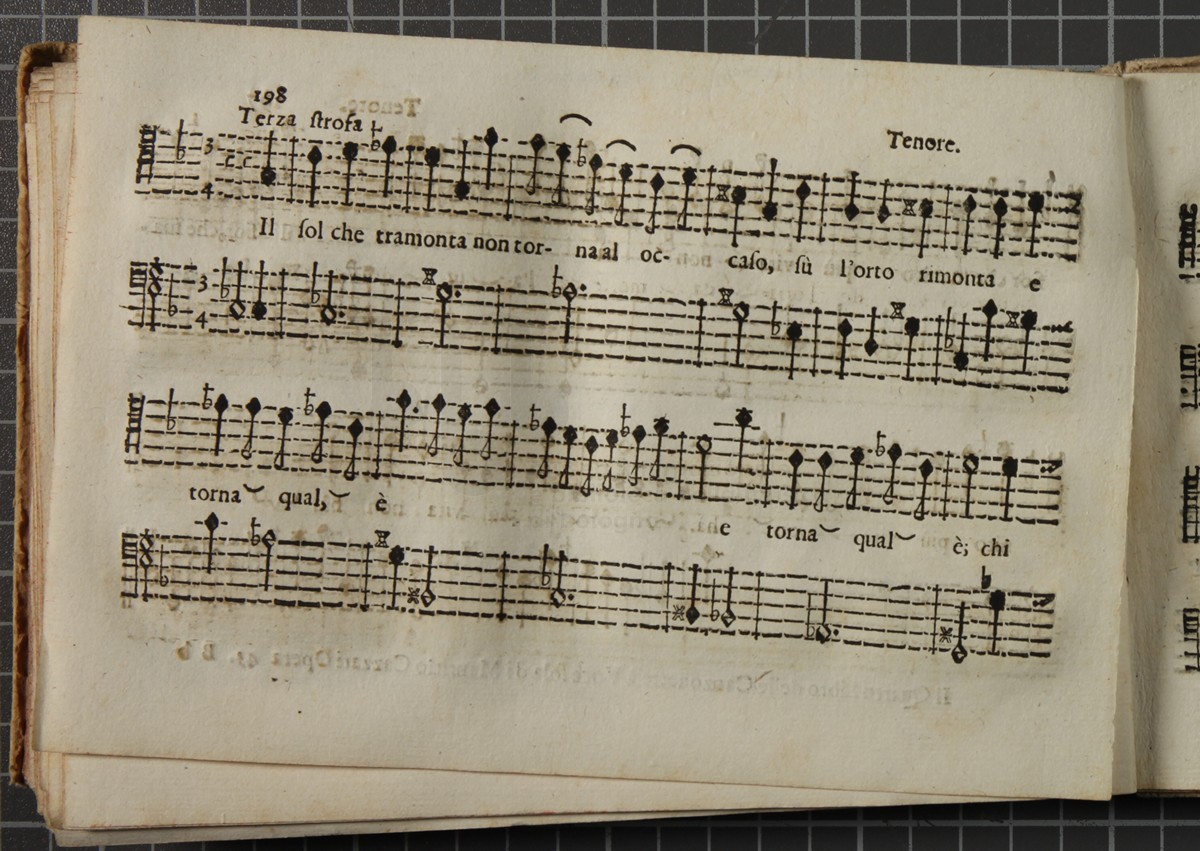 198
Terza ſtrofa
Tenore.
3
4
Il ſol che tramonta non tor- na al oc- caſo, sù l'orto rimonta e
3
4
torna qual, è che torna qual è; chi